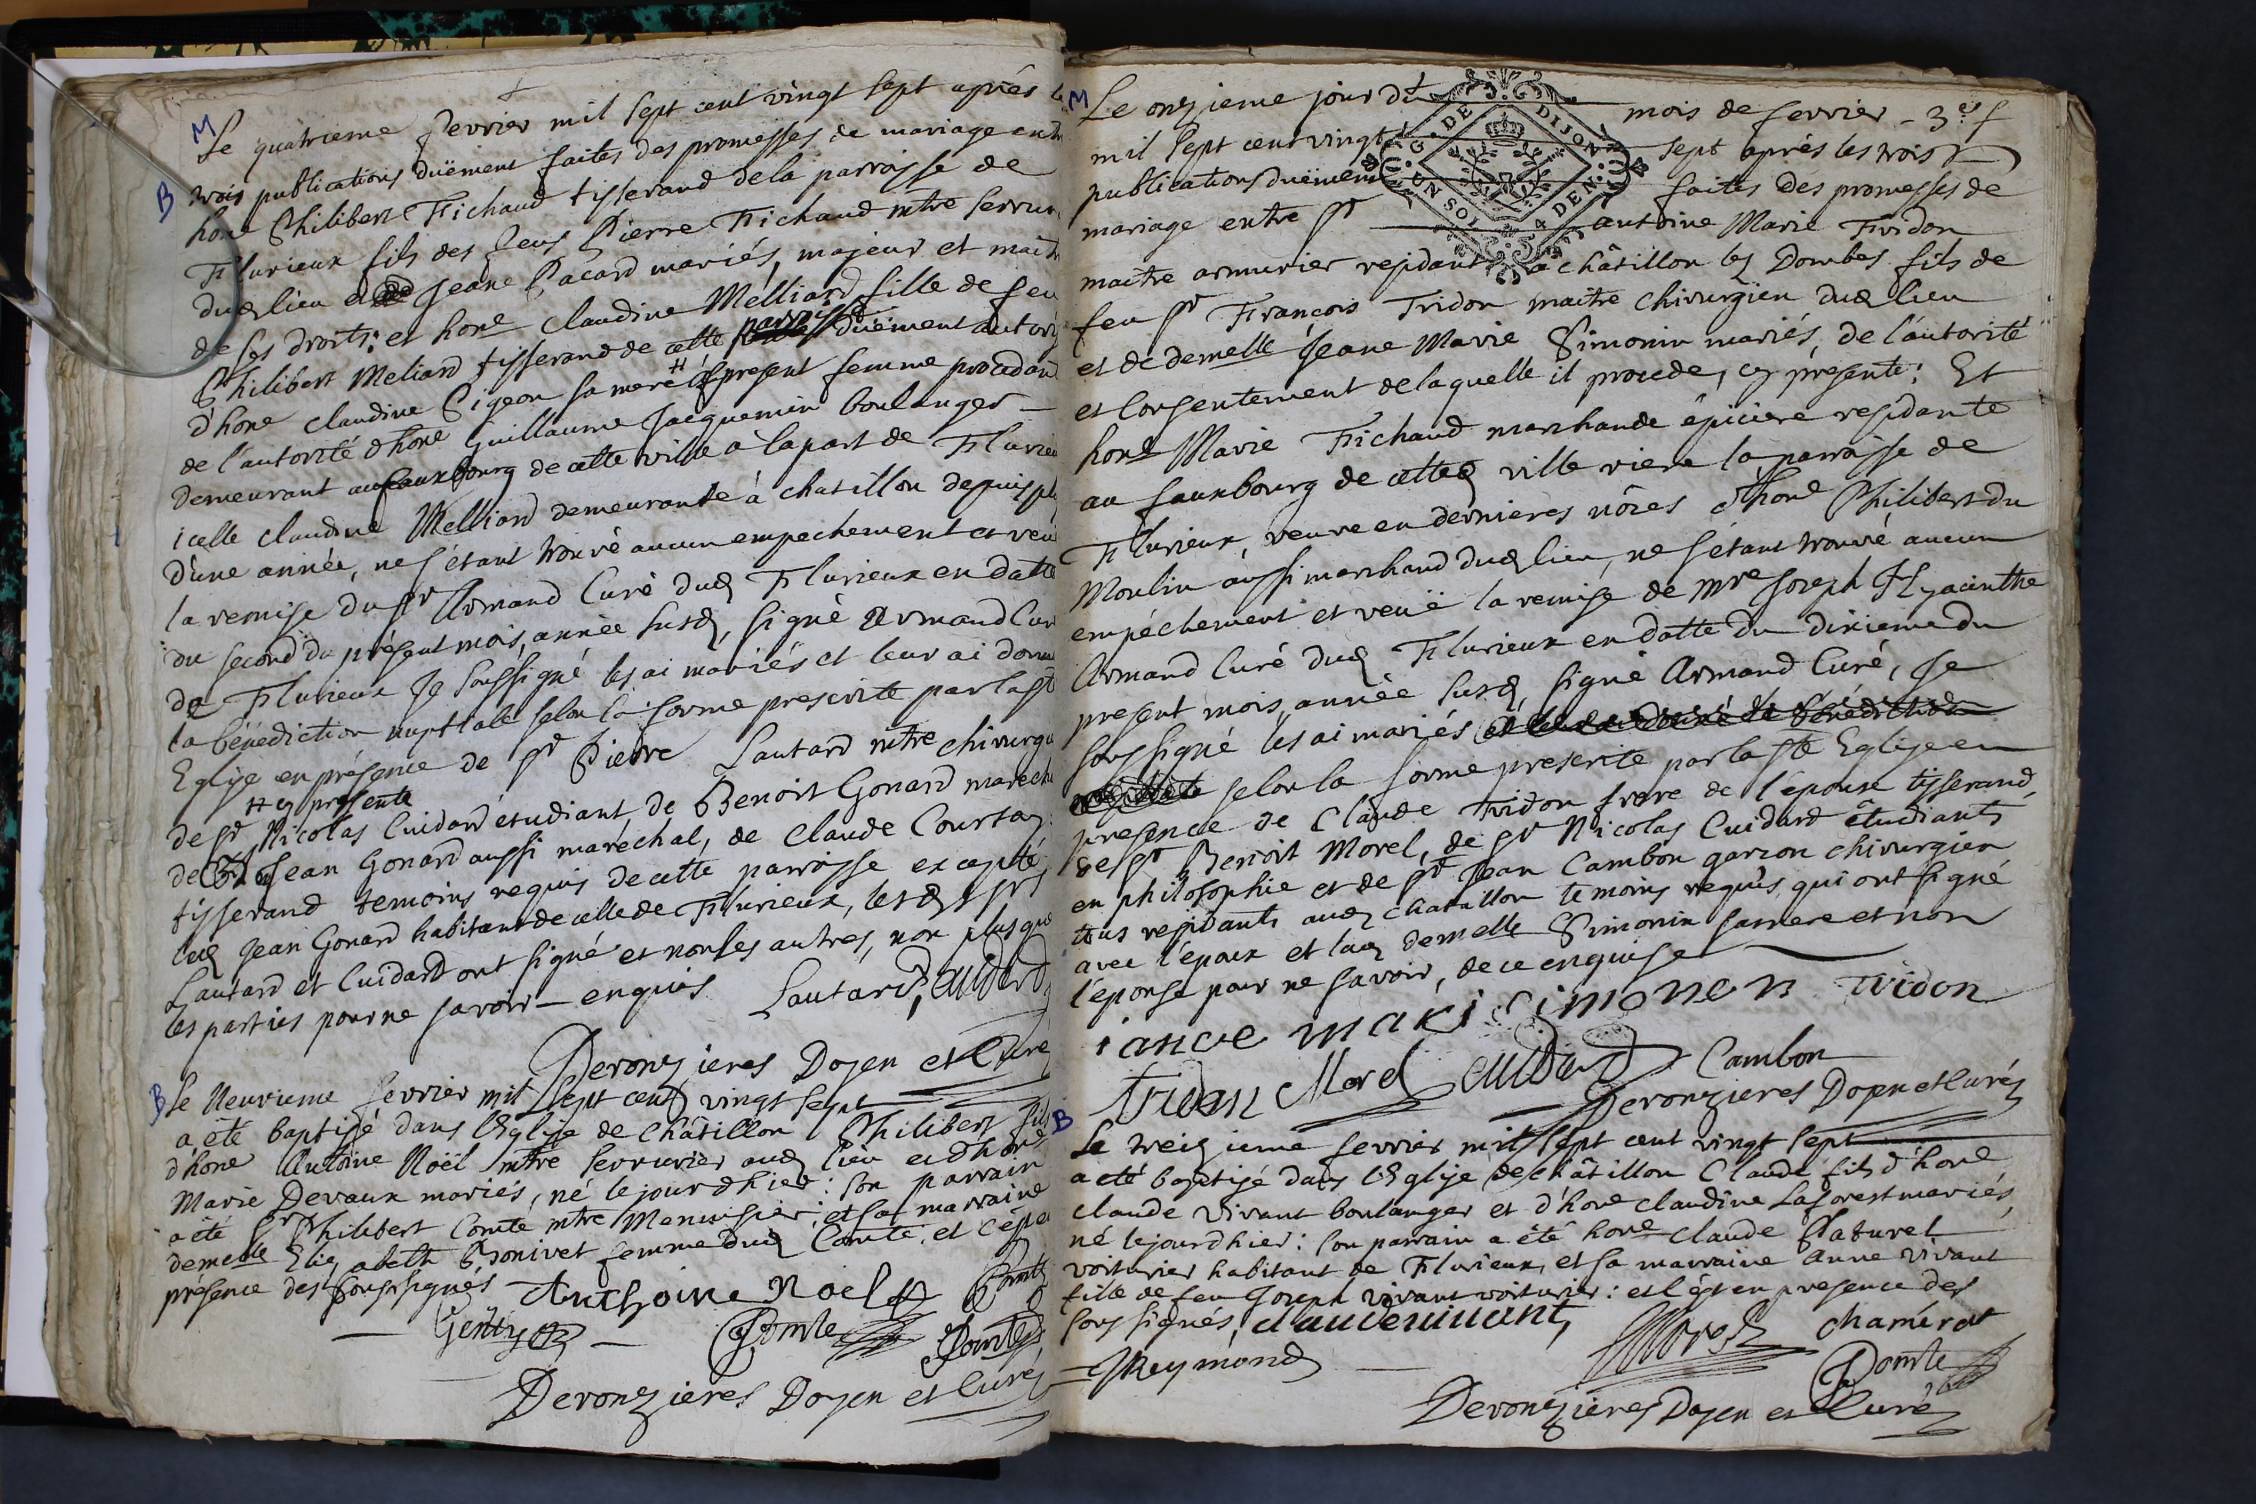 M
Le quatrieme fevrier mil sept cent vingt sept aprés le
B
trois publications duëment faites des promesses de mariage entr
hone Philibert Fichaud tisserand dela parroisse de
Flurieux fils des feus Pierre Fichaud mtre serrur
dud lieu et Jeane Pacard mariés, majeur et maitr
de ses droits; et hone Claudine Mélliard fille de feu
Philibert Meliard tisserand de cette parroisse duëment autori
d'hone Claudine Pigeon sa mere # à present femme procedan
de l'autorité d'hone Guillaume Jacquemin boulanger
demeurant au fauxbourg de cette ville à la part de Flurieu
icelle Claudine Melliard demeurante à chatillon depuis pl
d'une année, ne s'étant trouvé aucun empechement et veu
la remise du sr Armand Curé dud Flurieux en datte
du second du présent mois, année susd, signé Armand Cur
de Flurieux Je soussigné les ai mariés et leur ai donn
la bénédiction nuptiale selon la forme prescrite par la ste
Eglise en présence de sr Pierre Lautard mtre chirurg
# cy presente
de sr Nicolas Cuidard étudiant, de Benoit Gonard marech
de Jean Gonard aussi maréchal, de Claude Courtay
tisserand temoins requis de cette parroisse excepté
led Jean Gonard habitant de celle de Flurieux, lesd srs
Lautard et Cuidard ont signé et non les autres, non plus que
les parties pour ne savoir enquis Lautard, Cuidard
Deronzieres Doyen et Curé
B
Le Neuvieme fevrier mil sept cent vingt sept
a été baptisé dans l'Eglise de Châtillon Philibert fils
d'hone Antoine Noël mtre serrurier aud lieu et d'hone
Marie Devaux mariés, né le jour d'hier: son parrain
a été sr Philibert Comte mtre Menuisier; et sa marraine
demelle Elizabeth Bronivet femme dud Comte, et c'est en
présence des soussignés Anthoine Noël Comte
Genty Comte Comte
Deronzieres Doyen et Curé
M
Le onzieme jour du mois de fevrier - 3e f
mil sept cent vingt sept aprés les trois
publications duëment faites des promesses de
mariage entre sr Antoine Marie Tridon
G. DE DIJON
UN SOL 4 DEN.
maitre armurier residant à châtillon les Dombes fils de
feu sr François Tridon maitre chirurgien dud lieu
et de demelle Jeane Marie Simonin mariés, de l'autorité
et consentement de laquelle il procede, cy presente; Et
hone Marie Fichaud marchande épiciere residante
au fauxbourg de cetted ville riere la parroisse de
Flurieux, veuve en dernieres nôces d'hone Philibert du
Moulin aussi marchand dud lieu, ne s'étant trouvé aucun
empêchement et veuë la remise de mre Joseph Hyacinthe
Armand Curé dud Flurieux en datte du dixieme du
present mois, année susd, signé Armand Curé, Je
soussigné les ai mariés et leur ai donné la bénédiction
selon la forme prescrite par la ste Eglise en
presence de Claude Tridon frere de l'époux tisserand,
de sr Benoit Morel, de sr Nicolas Cuidard étudiants
en philosophie et de sr Jean Cambon garçon chirurgien
tous residants aud chatillon temoins requis qui ont signé
avec l'époux et lad demelle Simonin sa mere et non
l'épouse pour ne savoir, de ce enquise
iance mari simonen Tridon
Tridon Morel Cuidard Cambon
Deronzieres Doyen et Curé
B
Le treizieme fevrier mil sept cent vingt sept
a été baptisé dans l'Eglise de Châtillon Claude fils d'hone
Claude Vivant boulanger et d'hone Claudine Laforest mariés,
né le jour d'hier: son parrain a été hone Claude Paturel
voiturier habitant de Flurieux, et sa marraine Anne Vivant
fille de feu Joseph Vivant voiturier: et c'est en presence des
soussignés, claude vivant, Morel chamérat
JReymond Comte
Deronzieres Doyen et Curé